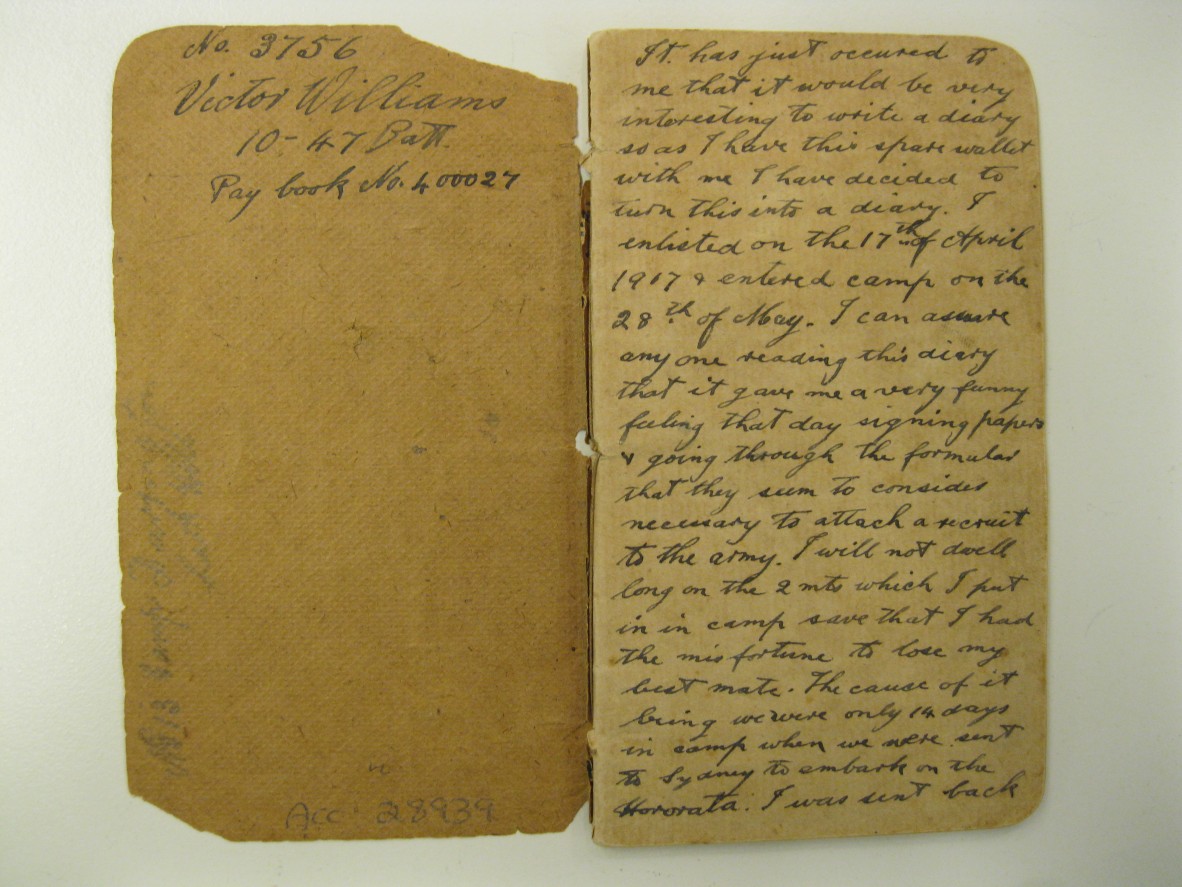 No. 3756
Victor Williams
10-47 Batt.
Pay book No. 400027
Acc: 28939
It. has just occured to
me that it would be very
interesting to write a diary
so as I have this spare wallet
with me I have decided to
turn this into a diary. I
enlisted on the 17th of April
1917 & entered camp on the
28th of May. I can assure
any one reading this diary
that it gave me a very funny
feeling that day signing papers
& going through the formular
that they seem to consider
necessary to attach a recruit
to the army. I will not dwell
long on the 2 mts which I put
in in camp save that I had
the misfortune to lose my
best mate. The cause of it
being we were only 14 days
in camp when we were sent
to Sydney to embark on the
Hororata. I was sent back